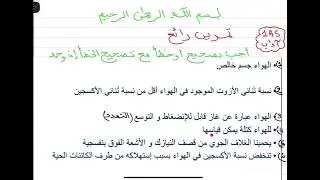 بسم الله الرحمن الرحيم
تمرين رائع
أجب بصحيح أو خطأ مع تصحيح الخطأ إن وجد
الهواء جسم خالص
نسبة ثنائي الأزوت الموجود في الهواء أقل من نسبة ثنائي الأكسجين
الهواء عبارة عن غاز قابل للإنضغاط و التوسع (التمدد)
للهواء كتلة يمكن قياسها
يحمينا الغلاف الجوي من قصف النيازك و الأشعة الفوق بنفسجية
تنخفض نسبة الأكسجين في الهواء بسبب إستهلاكه من طرف الكائنات الحية